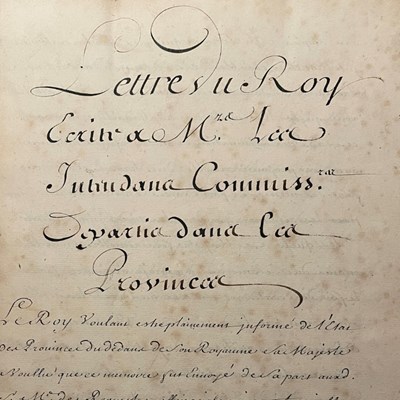 Lettre du Roy
Ecritte a M.rs Les
Intendans Commiss.res
Departis dans les
Provinces
Le Roy Voulant estre plainement informé de l'Etat
des Provinces du dedans de son Royaume Sa Majesté
a Voullu que ce memoire fut Envoyé de sa part aud.